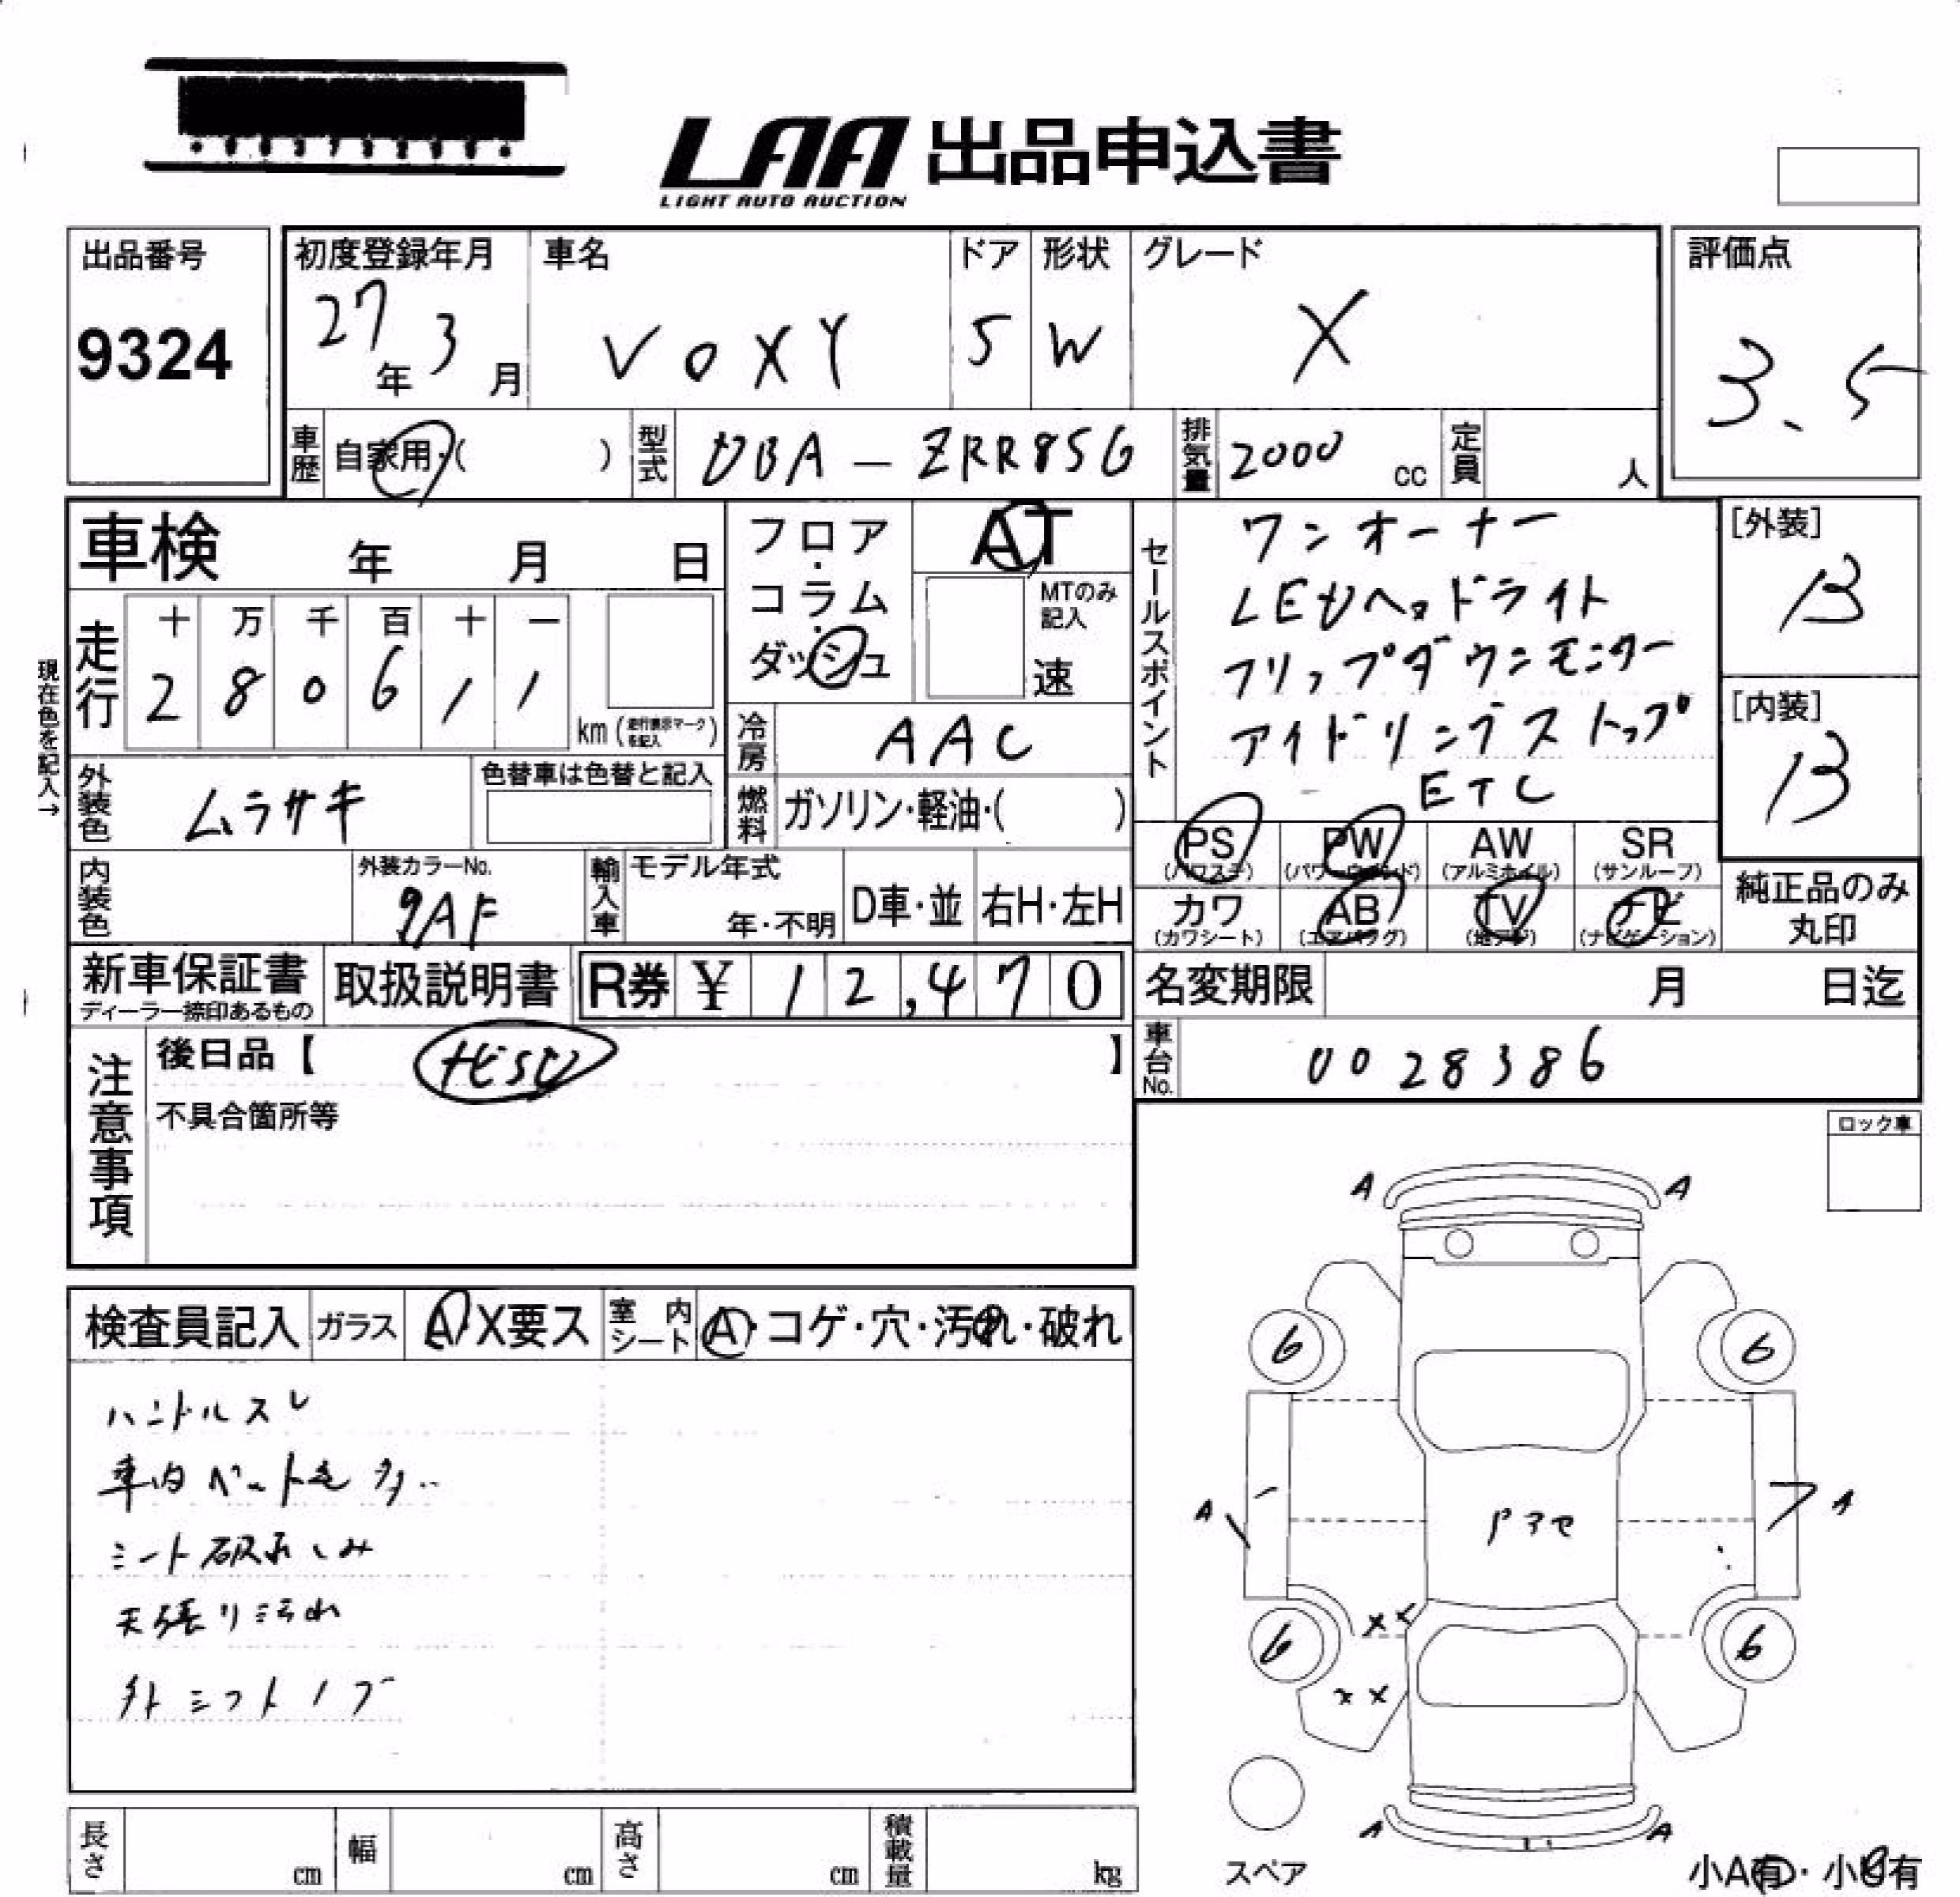 LAA 出品申込書
LIGHT AUTO AUCTION
出品番号
9324
初度登録年月
27年 3月
車名
VOXY
ドア
5
形状
W
グレード
X
評価点
3.5
車歴
自家用・( )
型式
DBA-ZRR85G
排気量
2000 cc
定員
人
車検 年 月 日
フロア・コラム・ダッシュ
AT
MTのみ記入
速
セールスポイント
ワンオーナー
LEDヘッドライト
フリップダウンモニター
アイドリングストップ
ETC
[外装]
B
[内装]
B
現在色を記入→
走行
十 万 千 百 十 一
2 8 0 6 1 1
km(走行表示マークを記入)
冷房
AAC
外装色
ムラサキ
色替車は色替と記入
燃料
ガソリン・軽油・( )
PS (パワステ)
PW (パワーウインド)
AW (アルミホイル)
SR (サンルーフ)
カワ (カワシート)
AB (エアバッグ)
TV (地デジ)
ナビ (ナビゲーション)
純正品のみ丸印
内装色
外装カラーNo.
9AF
輸入車
モデル年式
年・不明
D車・並
右H・左H
新車保証書
ディーラー捺印あるもの
取扱説明書
R券 ¥ 12,470
名変期限 月 日迄
車台No.
0028386
注意事項
後日品【 】
不具合箇所等
ロック車
A A
検査員記入
ガラス
A・X要ス
室内シート
A・コゲ・穴・汚れ・破れ
ハンドルスレ
車内ペット毛多
シート破れしみ
天張り汚れ
外シフトノブ
6 6
A A
6 6
X
X X
A A
スペア
小A有・小B有
長さ cm
幅 cm
高さ cm
積載量 kg